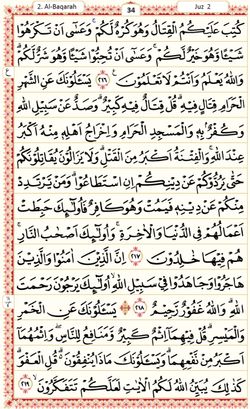 2. Al-Baqarah 34 Juz 2
كُتِبَ عَلَيْكُمُ الْقِتَالُ وَهُوَ كُرْهٌ لَّكُمْ ۚ وَعَسٰٓى اَنْ تَكْرَهُوْا
شَيْـًٔا وَّهُوَ خَيْرٌ لَّكُمْ ۚ وَعَسٰٓى اَنْ تُحِبُّوْا شَيْـًٔا وَّهُوَ شَرٌّ لَّكُمْ ۗ
وَاللّٰهُ يَعْلَمُ وَاَنْتُمْ لَا تَعْلَمُوْنَ ۝٢١٦ يَسْـَٔلُوْنَكَ عَنِ الشَّهْرِ
الْحَرَامِ قِتَالٍ فِيْهِ ۗ قُلْ قِتَالٌ فِيْهِ كَبِيْرٌ ۗ وَصَدٌّ عَنْ سَبِيْلِ اللّٰهِ
وَكُفْرٌۢ بِهٖ وَالْمَسْجِدِ الْحَرَامِ وَاِخْرَاجُ اَهْلِهٖ مِنْهُ اَكْبَرُ
عِنْدَ اللّٰهِ ۚ وَالْفِتْنَةُ اَكْبَرُ مِنَ الْقَتْلِ ۗ وَلَا يَزَالُوْنَ يُقَاتِلُوْنَكُمْ
حَتّٰى يَرُدُّوْكُمْ عَنْ دِيْنِكُمْ اِنِ اسْتَطَاعُوْا ۗ وَمَنْ يَّرْتَدِدْ
مِنْكُمْ عَنْ دِيْنِهٖ فَيَمُتْ وَهُوَ كَافِرٌ فَاُولٰٓئِكَ حَبِطَتْ
اَعْمَالُهُمْ فِى الدُّنْيَا وَالْاٰخِرَةِ ۚ وَاُولٰٓئِكَ اَصْحٰبُ النَّارِ ۚ
هُمْ فِيْهَا خٰلِدُوْنَ ۝٢١٧ اِنَّ الَّذِيْنَ اٰمَنُوْا وَالَّذِيْنَ
هَاجَرُوْا وَجَاهَدُوْا فِيْ سَبِيْلِ اللّٰهِ ۙ اُولٰٓئِكَ يَرْجُوْنَ رَحْمَتَ
اللّٰهِ ۗ وَاللّٰهُ غَفُوْرٌ رَّحِيْمٌ ۝٢١٨ يَسْـَٔلُوْنَكَ عَنِ الْخَمْرِ
وَالْمَيْسِرِ ۗ قُلْ فِيْهِمَآ اِثْمٌ كَبِيْرٌ وَّمَنَافِعُ لِلنَّاسِ ۖ وَاِثْمُهُمَآ
اَكْبَرُ مِنْ نَّفْعِهِمَا ۗ وَيَسْـَٔلُوْنَكَ مَاذَا يُنْفِقُوْنَ ۗ قُلِ الْعَفْوَ ۗ
كَذٰلِكَ يُبَيِّنُ اللّٰهُ لَكُمُ الْاٰيٰتِ لَعَلَّكُمْ تَتَفَكَّرُوْنَ ۝٢١٩